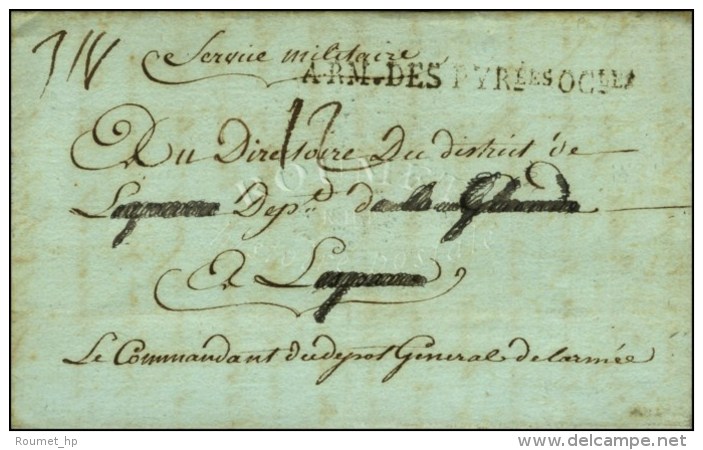 Service militaire
ARM. DES PYRÉES OCLES
12
Au Directoire Du district de
Dep.t de
A
Le Commandant du depot General de l'armée
Roumet_hp
delcampe.net